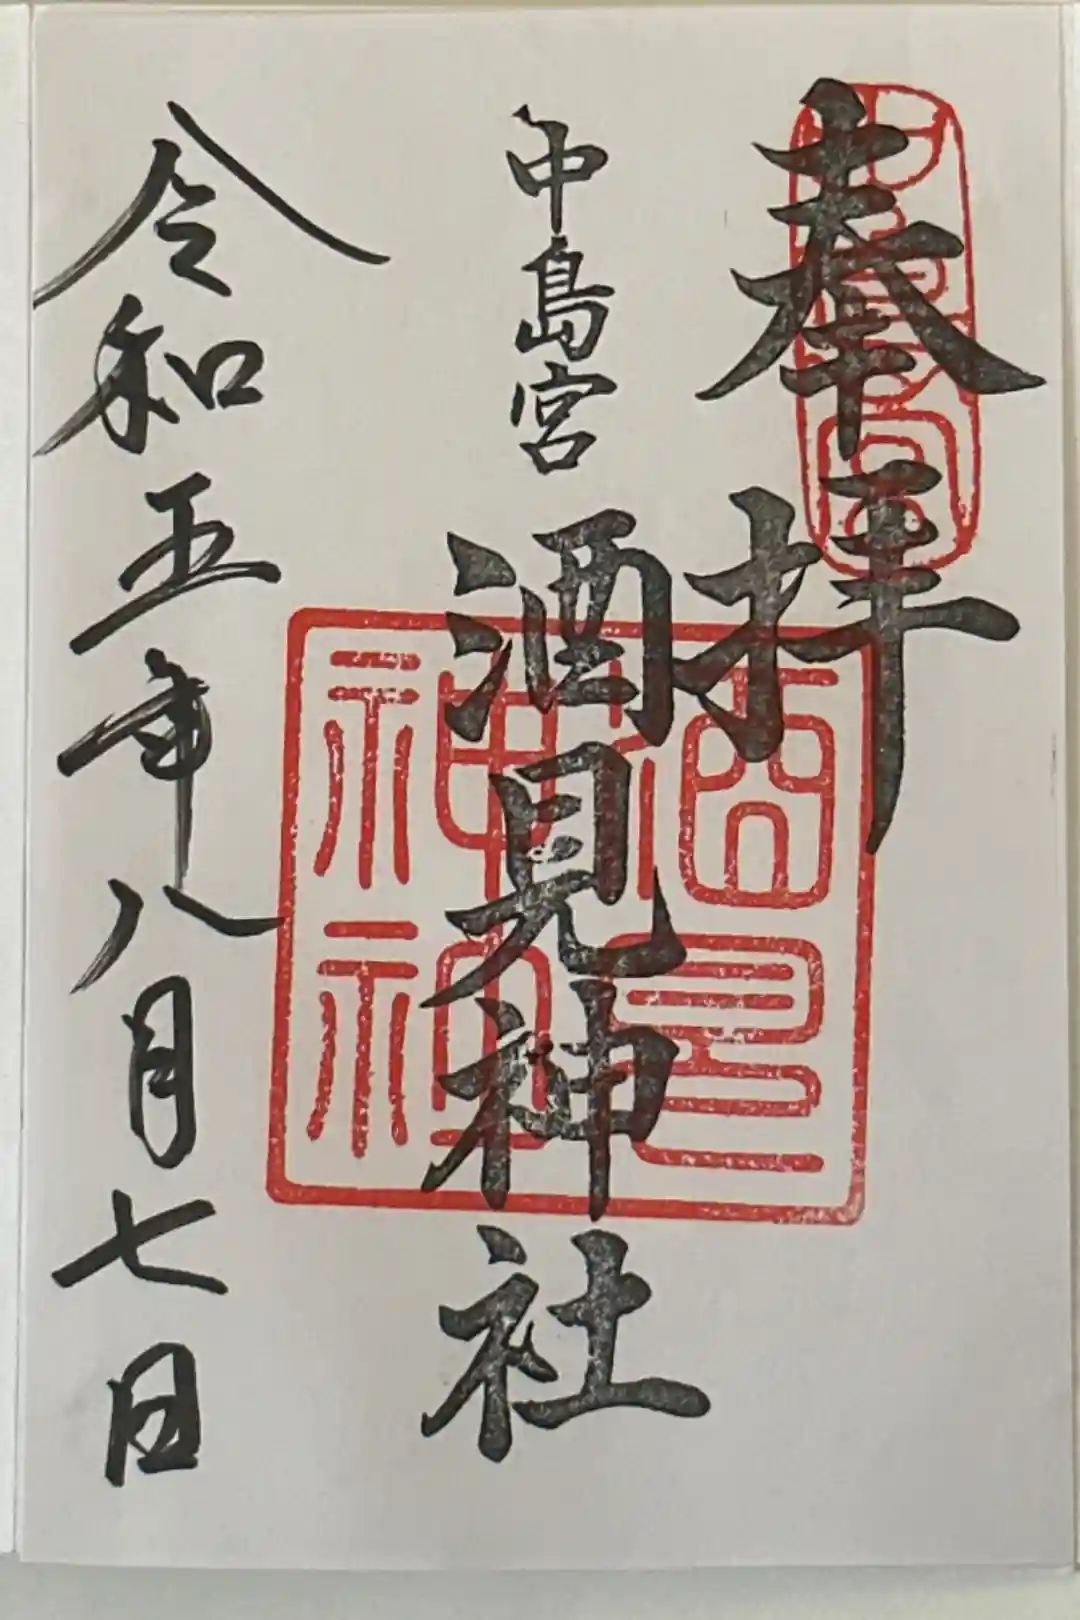 奉拝
中島宮
酒見神社
令和五年八月七日